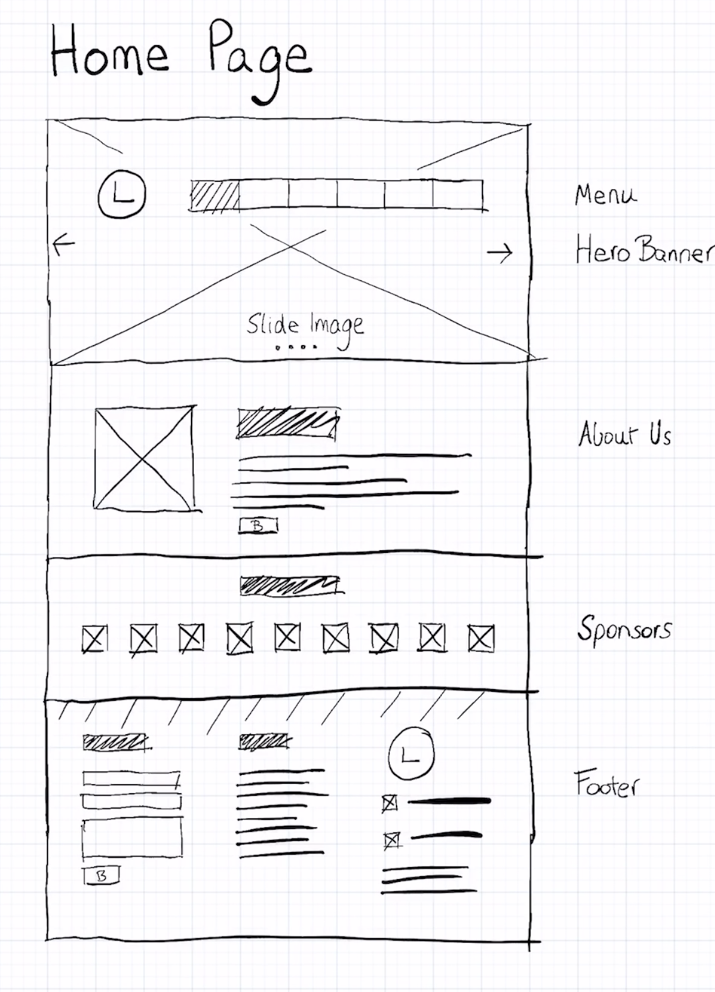 Home Page
L
Menu
Hero Banner
Slide Image
About Us
B
Sponsors
L
Footer
B